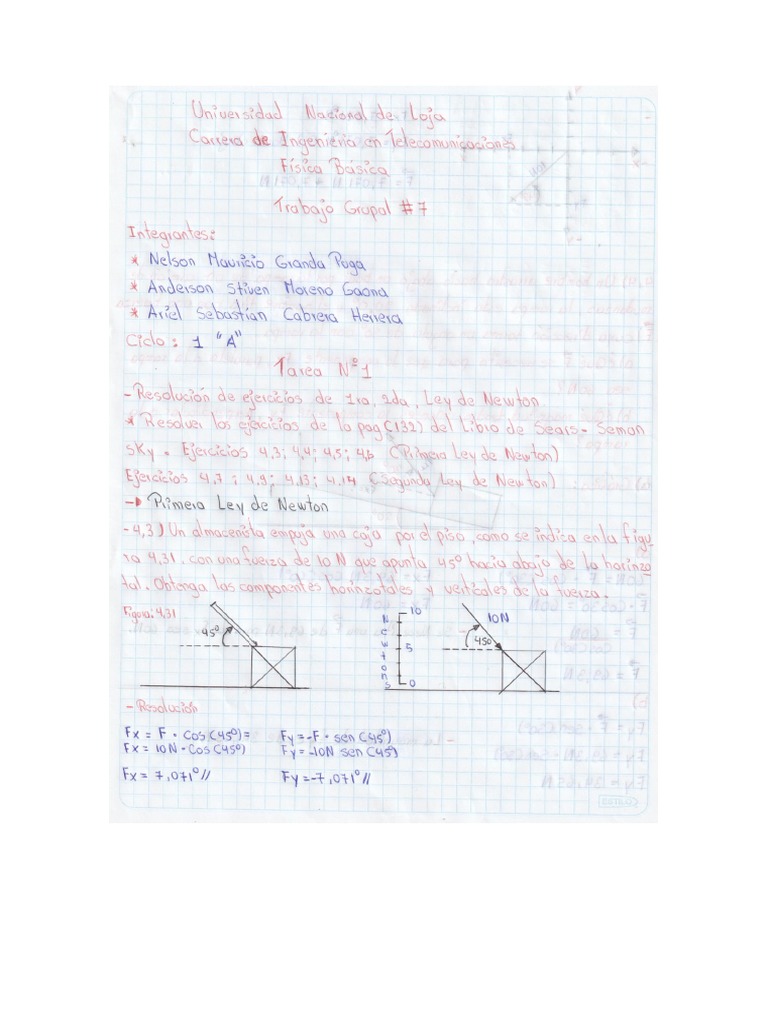 Universidad Nacional de Loja
Carrera de Ingenieria en Telecomunicaciones
Física Básica
Trabajo Grupal #7
Integrantes:
* Nelson Mauricio Granda Poga
* Anderson Stiven Moreno Gaona
* Ariel Sebastían Cabrera Herrera
Ciclo: 1 "A"
Tarea N°1
- Resolución de ejercicios de 1ra, 2da, Ley de Newton
* Resolver los ejercicios de la pag(132) del Libro de Sears-Seman
sky. Ejercicios 4,3; 4,4; 4,5; 4,6 (Primera Ley de Newton)
Ejercicios 4,7; 4,9; 4,13; 4,14 (Segunda Ley de Newton)
-> Primera Ley de Newton
-4,3) Un almacenista empuja una caja por el piso, como se indica en la figu-
ra 4,31. con una fuerza de 10 N que apunta 45° hacia abajo de la horinzo-
tal. Obtenga las componentes horinzotales y verticales de la fuerza.
Figura: 4,31
45°
Newtons
10
5
0
10N
45°
- Resolución
Fx = F · Cos(45°)=
Fx = 10N · Cos(45°)
Fx = 7,071° //
Fy = -F · sen(45°)
Fy = -10N sen(45°)
Fy = -7,071° //